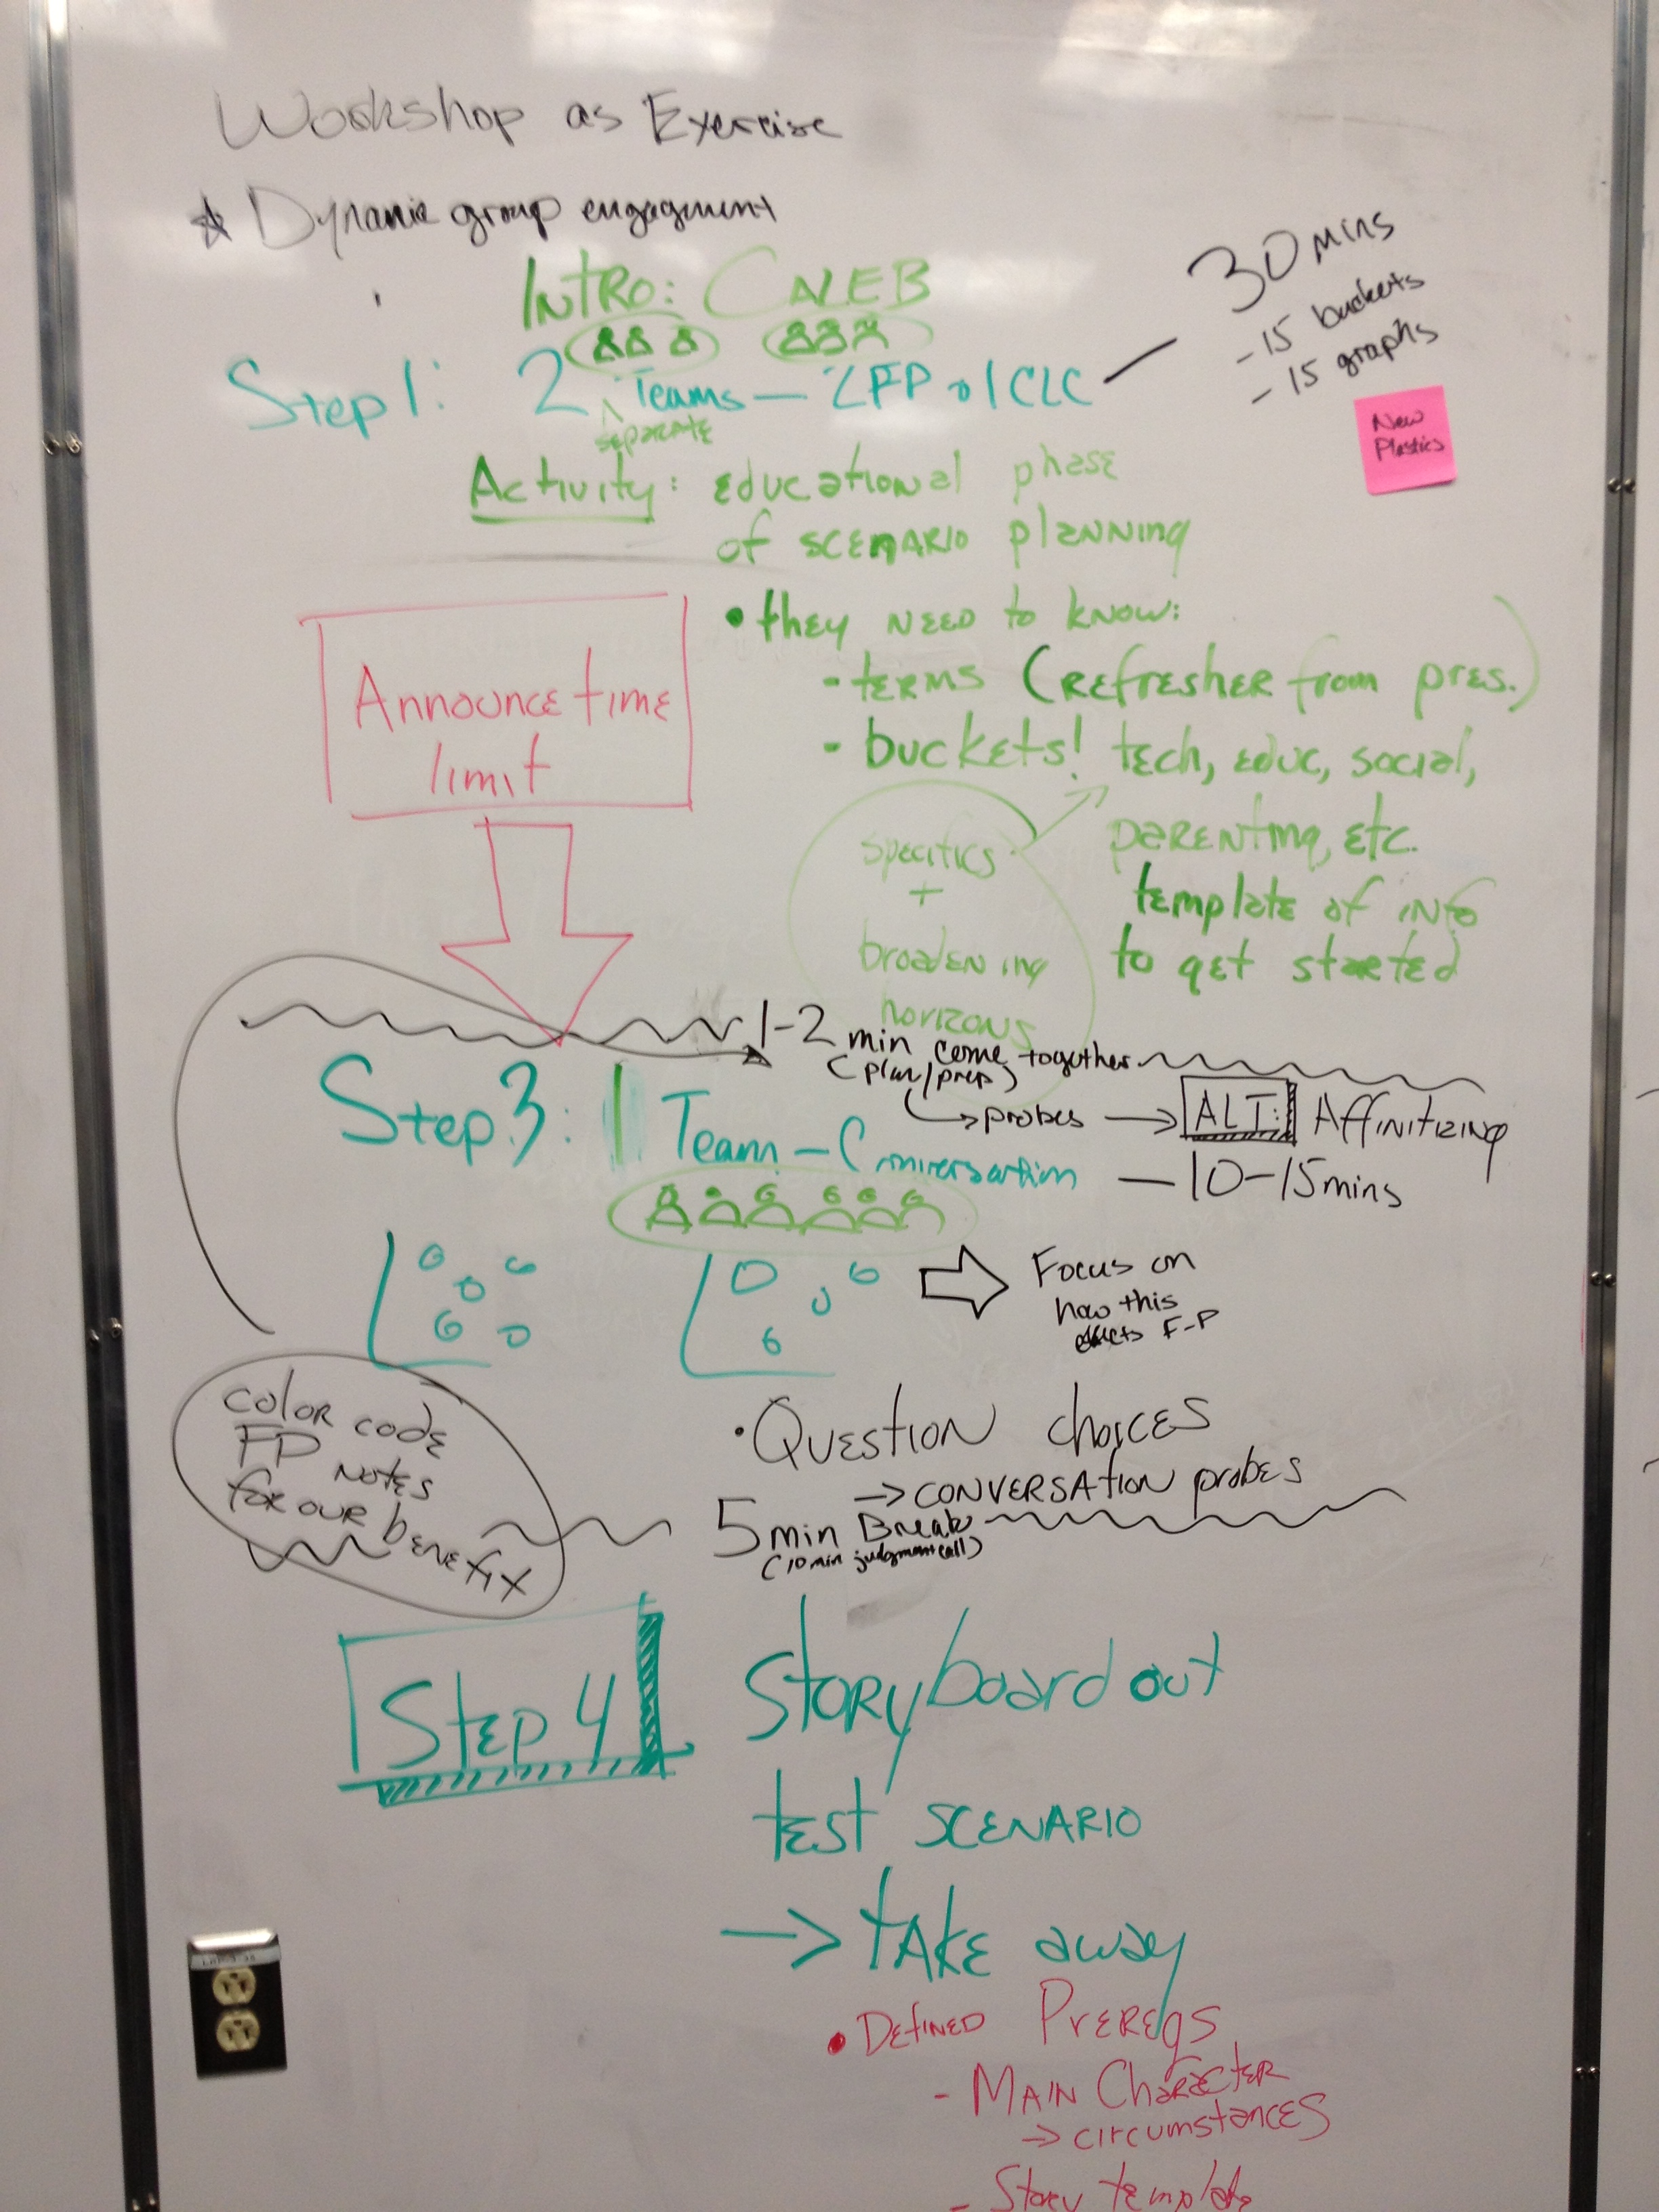 Workshop as Exercise
☆ Dynamic group engagement
INTRO: CALEB
30 mins
- 15 buckets
- 15 graphs
Step 1: 2 Teams — 2 FP 1 CLC
separate
New
Plastics
Activity: educational phase
of SCENARIO planning
• they NEED to know:
- terms (REfresher from pres.)
- buckets! tech, educ, social,
parenting, etc.
template of info
to get started
specifics
+
broadening
horizons
Announce time
limit
1-2 min come together
(plan/prep)
→ probes → ALT: Affinitizing
Step 3: 1 Team — Conversation — 10-15 mins
Focus on
how this
effects F-P
• Question choices
→ CONVERSATION probes
color code
FP notes
for our benefit
5 min Break
(10 min judgment call)
Step 4
Storyboard out
test SCENARIO
→ TAKE away
• DEFINED PREREQS
- MAIN ChaRacTER
→ circumstances
- Story template